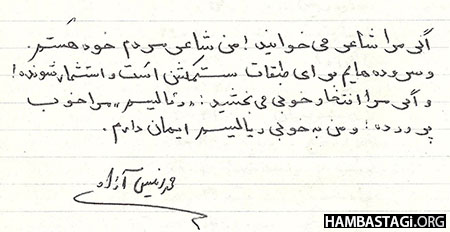 اگر مرا شاعر می‌خوانید! من شاعر مردم خود هستم.
و سروده‌هایم برای طبقات ستمکش است و استثمارشونده!
و اگر مرا انتقاد خوبی می‌بخشید: «ریالیسم» مرا خوب
پرورده؛ و من به خوبی ریالیسم ایمان دارم.
آزاد
HAMBASTAGI.ORG